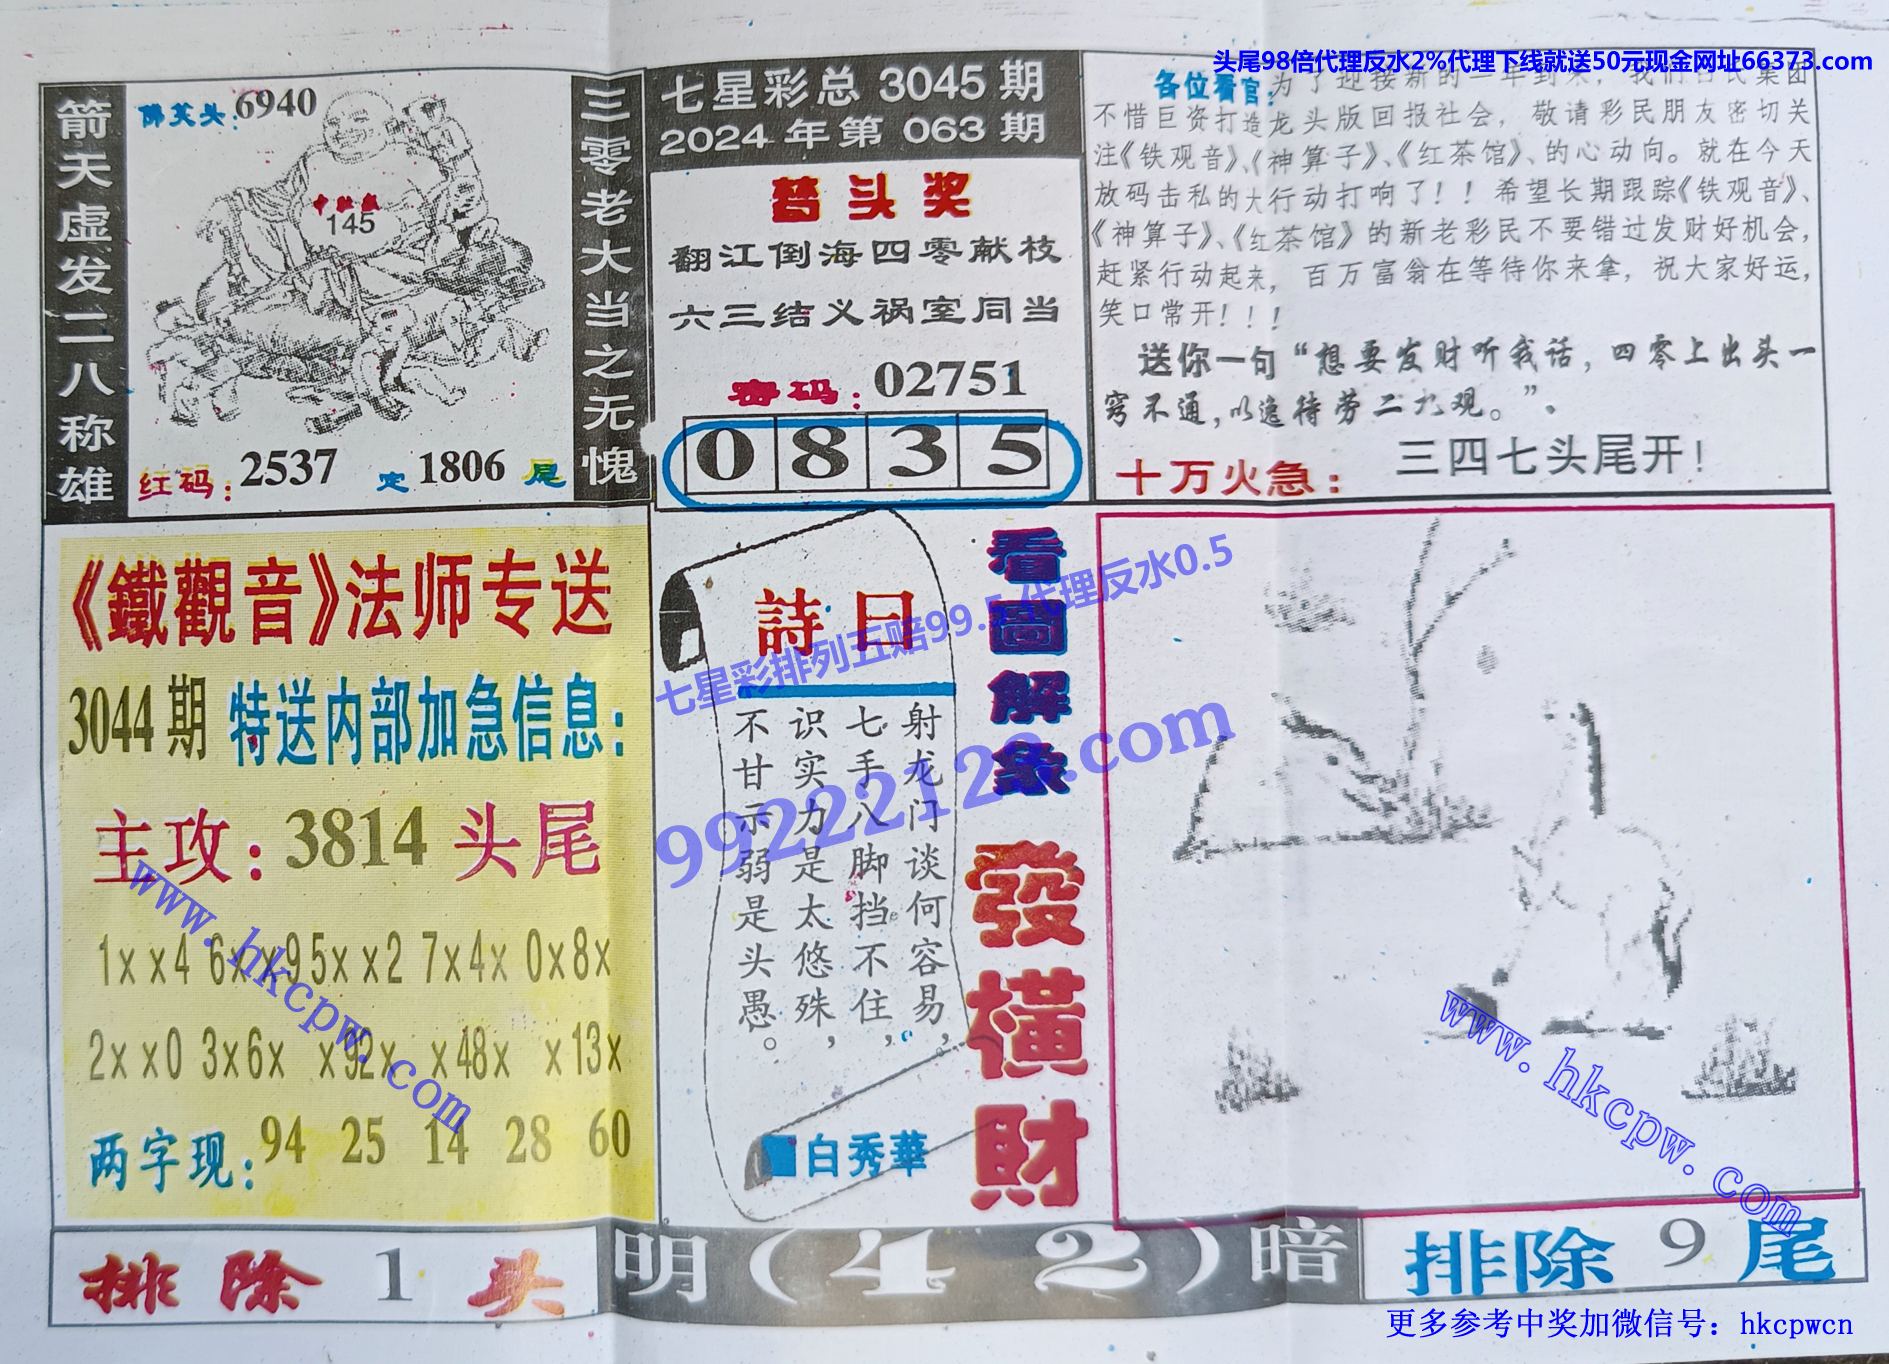 头尾98倍代理反水2%代理下线就送50元现金网址66373.com
箭天虚发二八称雄
佛艾头:6940
中肚藏
145
红码:2537 定1806尾
三零老大当之无愧
七星彩总3045期
2024年第063期
替头奖
翻江倒海四零献枝
六三结义祸室同当
密码:02751
0835
各位看官:为了迎接新的一年到来,我们白氏集团
不惜巨资打造龙头版回报社会,敬请彩民朋友密切关
注《铁观音》、《神算子》、《红茶馆》、的心动向。就在今天
放码击私的大行动打响了!!希望长期跟踪《铁观音》、
《神算子》、《红茶馆》的新老彩民不要错过发财好机会,
赶紧行动起来,百万富翁在等待你来拿,祝大家好运,
笑口常开!!!
送你一句“想要发财听我话,四零上出头一
窍不通,以逸待劳二九观。”。
十万火急:三四七头尾开!
《鐵觀音》法师专送
3044期 特送内部加急信息:
主攻:3814头尾
1xx4 6xx9 5xx2 7x4x 0x8x
2xx0 3x6x x92x x48x x13x
两字现:94 25 14 28 60
詩曰
射龙门谈何容易,
七手八脚挡不住,
识实力是太悠殊,
不甘示弱是头愚。
白秀華
看圖解象
發橫財
七星彩排列五赔99.5 代理反水0.5
99222123.com
www.hkcpw.com
www.hkcpw.com
排除1头
明(42)暗
排除9尾
更多参考中奖加微信号:hkcpwcn